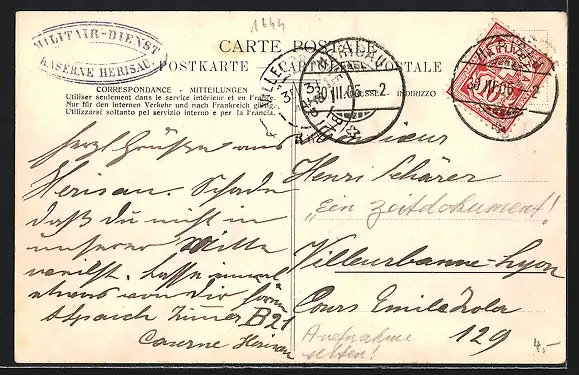 1644
MILITAIR-DIENST
KASERNE HERISAU
CARTE POSTALE
POSTKARTE
CORRESPONDANCE - MITTEILUNGEN
Utiliser seulement dans le service intérieur et en
Nur für den Internen Verkehr und nach Frankreich
Utilizzarsi soltanto pel servizio interno e per la Francia.
INDIRIZZO
HERISAU
30 III 06 2
Herzl Grüsse aus
Herisau. Schade
daß du nicht in
unserer Mitte
weilst. Lasse einmal
etwas von dir hören
Zimmer B21
Caserne Herisau
Monsieur
Henri Schärer
"Ein Zeitdokument!
Villeurbanne-Lyon
Cours Emile Zola
129
Aufnahme
selten!
4,-